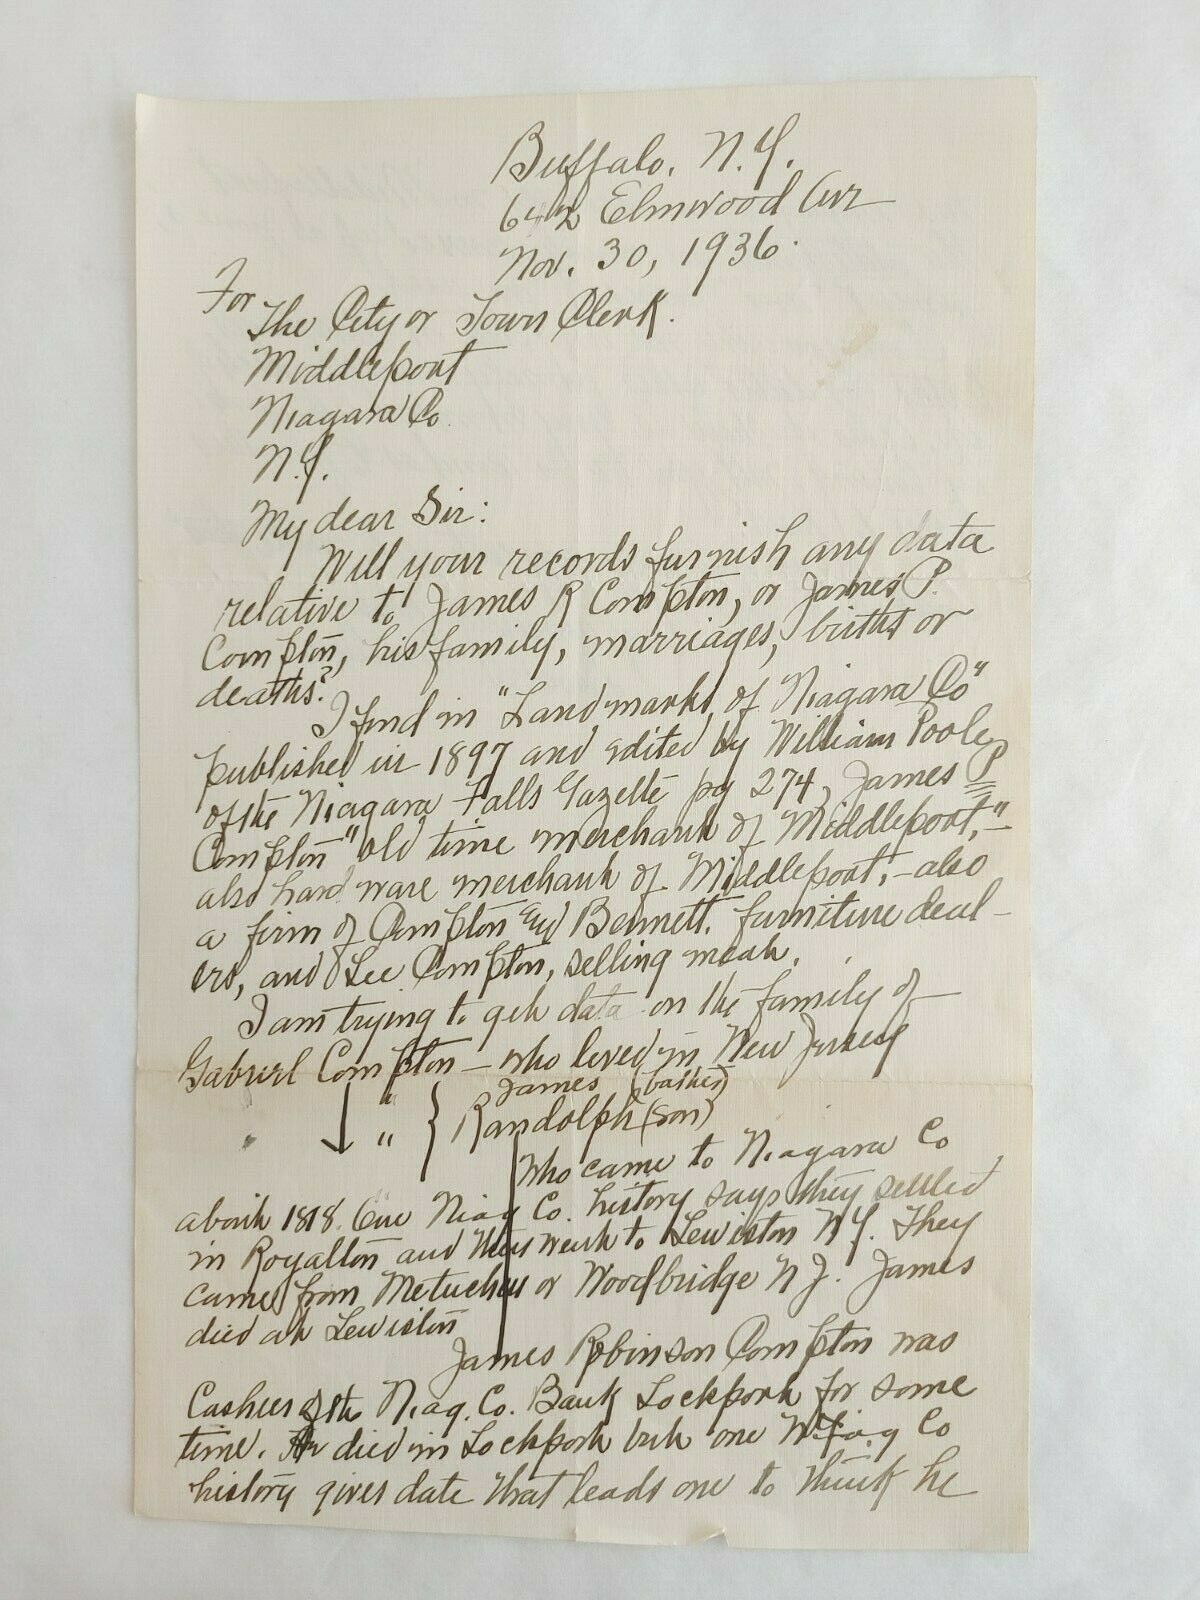 Buffalo, N.Y.
642 Elmwood Ave
Nov. 30, 1936.
For
The City or Town Clerk.
Middleport
Niagara Co.
N.Y.
My dear Sir:
Will your records furnish any data
relative to James R Compton, or James P.
Compton, his family, marriages, births or
deaths?
I find in "Landmarks of Niagara Co"
published in 1897 and edited by William Pool
of the Niagara Falls Gazette pg 274, James P
Compton "old time merchant of Middleport,"–
also hard ware merchant of Middleport,– also
a firm of Compton and Bennett, furniture deal-
ers, and Lee Compton, selling meat.
I am trying to get data on the family of
Gabriel Compton – who lived in New Jersey
" } James (father)
" } Randolph (son)
who came to Niagara Co
about 1818. One Niag Co. history says they settled
in Royalton and then went to Lewiston N.Y. They
came from Metuchen or Woodbridge N J. James
died at Lewiston
James Robinson Compton was
Cashier of the Niag. Co. Bank Lockport for some
time. He died in Lockport but one Niag Co
history gives date that leads one to think he